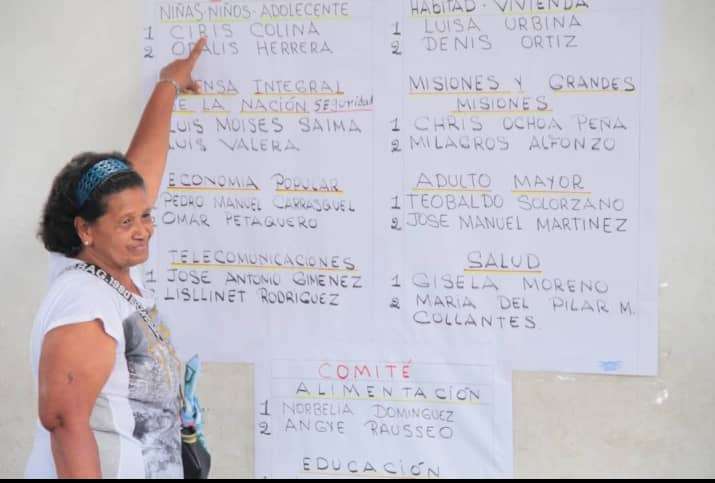 NIÑAS-NIÑOS-ADOLECENTE
1 CIRIS COLINA
2 ODALIS HERRERA
INTEGRAL
DE LA NACIÓN SEGURIDAD
LUIS MOISES SAIMA
LUIS VALERA
ECONOMIA POPULAR
PEDRO MANUEL CARRASQUEL
OMAR PETAQUERO
TELECOMUNICACIONES
1 JOSE ANTONIO GIMENEZ
2 LISLLINET RODRIGUEZ
HABITAD-VIVIENDA
1 LUISA URBINA
2 DENIS ORTIZ
MISIONES Y GRANDES
MISIONES
1 CHRIS OCHOA PEÑA
2 MILAGROS ALFONZO
ADULTO MAYOR
1 TEOBALDO SOLORZANO
2 JOSE MANUEL MARTINEZ
SALUD
1 GISELA MORENO
2 MARIA DEL PILAR M.
COLLANTES.
COMITÉ
ALIMENTACIÓN
1 NORBELIA DOMINGUEZ
2 ANGYE RAUSSEO
EDUCACIÓN